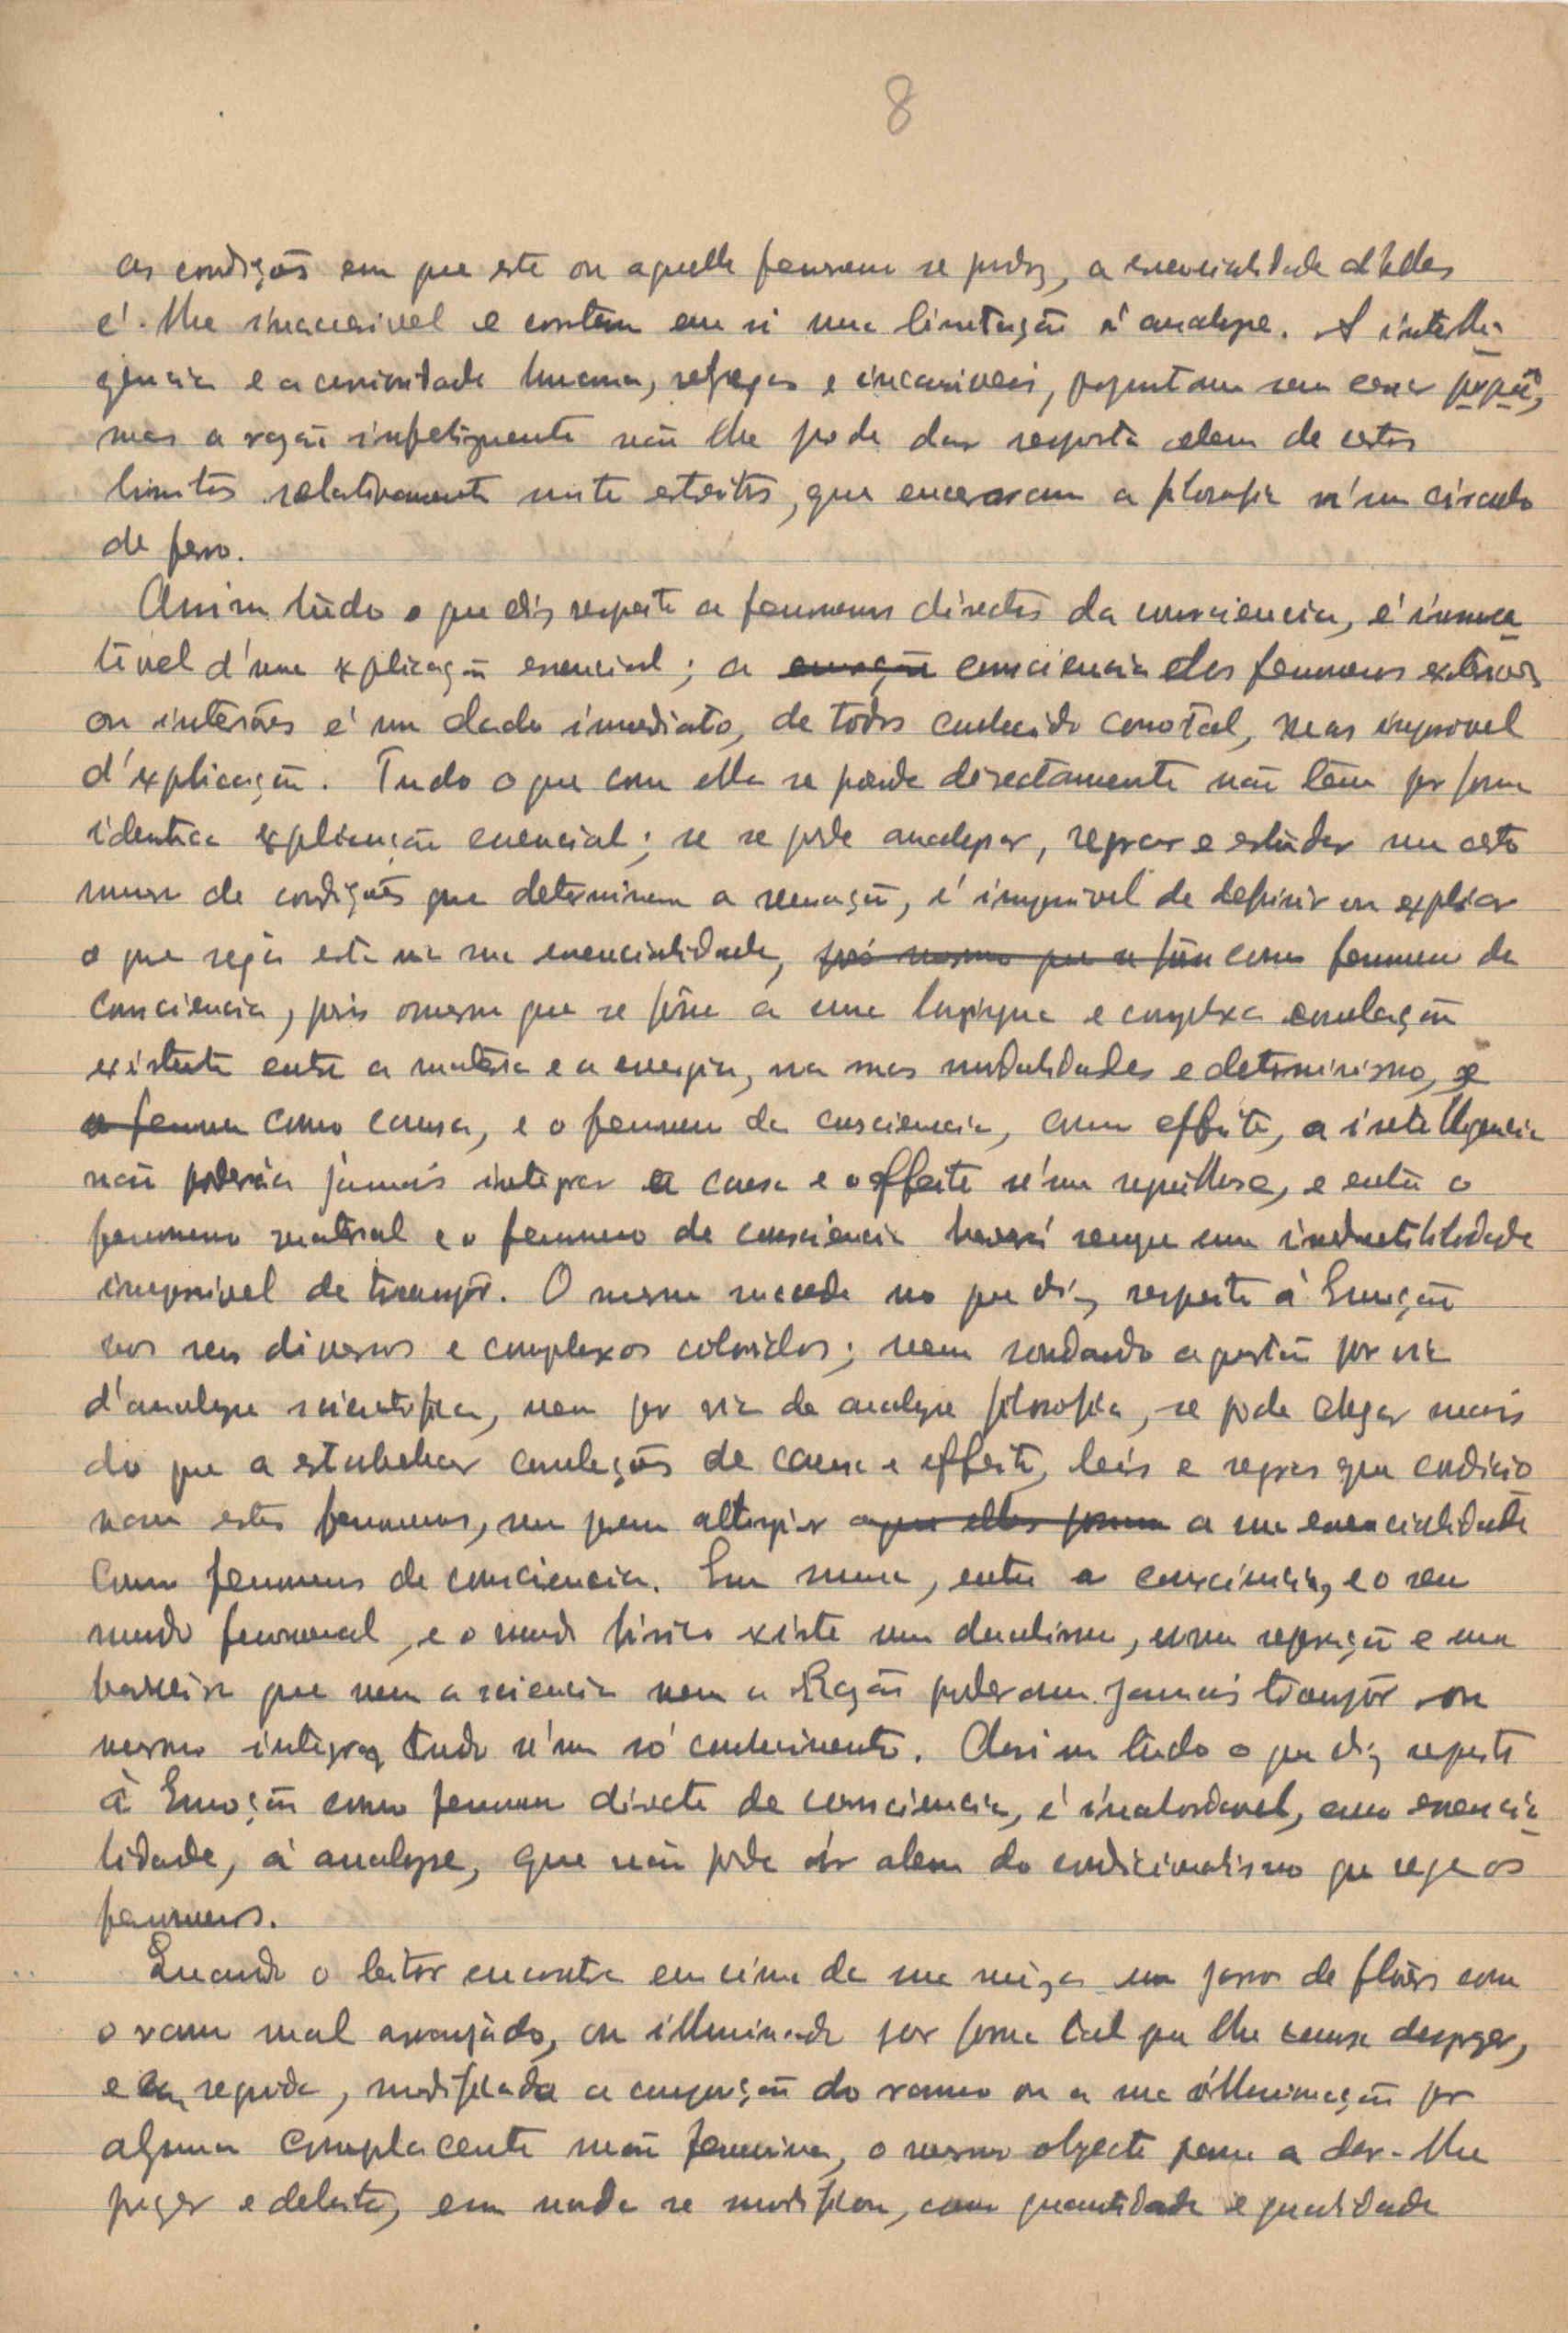 8
as condições em que este ou aquelle fenomeno se produz, a essencialidade d'elles
é-lhe inacessivel e contem em si uma limitação á analyse. A intelli-
gencia e a curiosidade humana, sofregas e incansaveis, preguntam sem cessar porquê,
mas a razão infelizmente não lhe pode dar resposta alem de certos
limites relativamente muito estreitos, que encerraram a filosofia n'um circulo
de ferro.
Assim tudo o que diz respeito a fenomenos directos da consciencia, é insusce
tivel d'uma explicação essencial; a emoção consciencia dos fenomenos exteriores
ou interiores é um dado immediato, de todos conhecido como tal, mas impossivel
d'explicação. Tudo o que com ella se prende directamente não tem por forma
identica explicação essencial; se se pode analysar, e estudar um certo
numero de condições que determinam a sensação, é impossivel de definir ou explicar
o que seja esta na sua essencialidade, como fenomeno da
consciencia, pois mesmo que se e complexa correlação
existente entre a materia e a energia, na suas modalidades e determinismo, e
o fenomeno como causa, e o fenomeno da consciencia, como effeito, a intelligencia
não poderia jamais integrar a causa e o effeito n'um, e entre o
fenomeno material e o fenomeno de consciencia haverá sempre uma irreductibilidade
impossivel de transpôr. O mesmo sucede no que diz respeito á Emoção
nos seus diversos e complexos coloridos; nem sondando a questão por via
d'analyse scientifica, nem por via de analyse filosofica, se pode chegar mais
do que a estabelecer correlações de causa e effeito, leis e regras que condicio
nam estes fenomenos, sem porem attingir a que elles formam a sua essencialidade
como fenomenos de consciencia. Em suma, entre a consciencia, e o seu
mundo fenomenal, e o mundo fisico existe um dualismo, uma separação e uma
barreira que nem a sciencia nem a Razão poderam jamais transpôr ou
mesmo integrar tudo n'um só conhecimento. Assim tudo o que diz respeito
á Emoção como fenomeno directo de consciencia, é inabordavel, como essencia
lidade, á analyse, que não pode ir alem do condicionalismo que rege os
fenomenos.
Quando o leitor encontra em cima da sua meza um jarro de flôres com
o ramo mal arranjado, ou illuminado por forma tal que lhe cause desprazer,
e em seguida, modificada a composição do ramo ou a sua illuminação por
alguma complacente mão feminina, o mesmo objecto passa a dar-lhe
prazer e deleite, em nada se modificou, como quantidade e qualidade